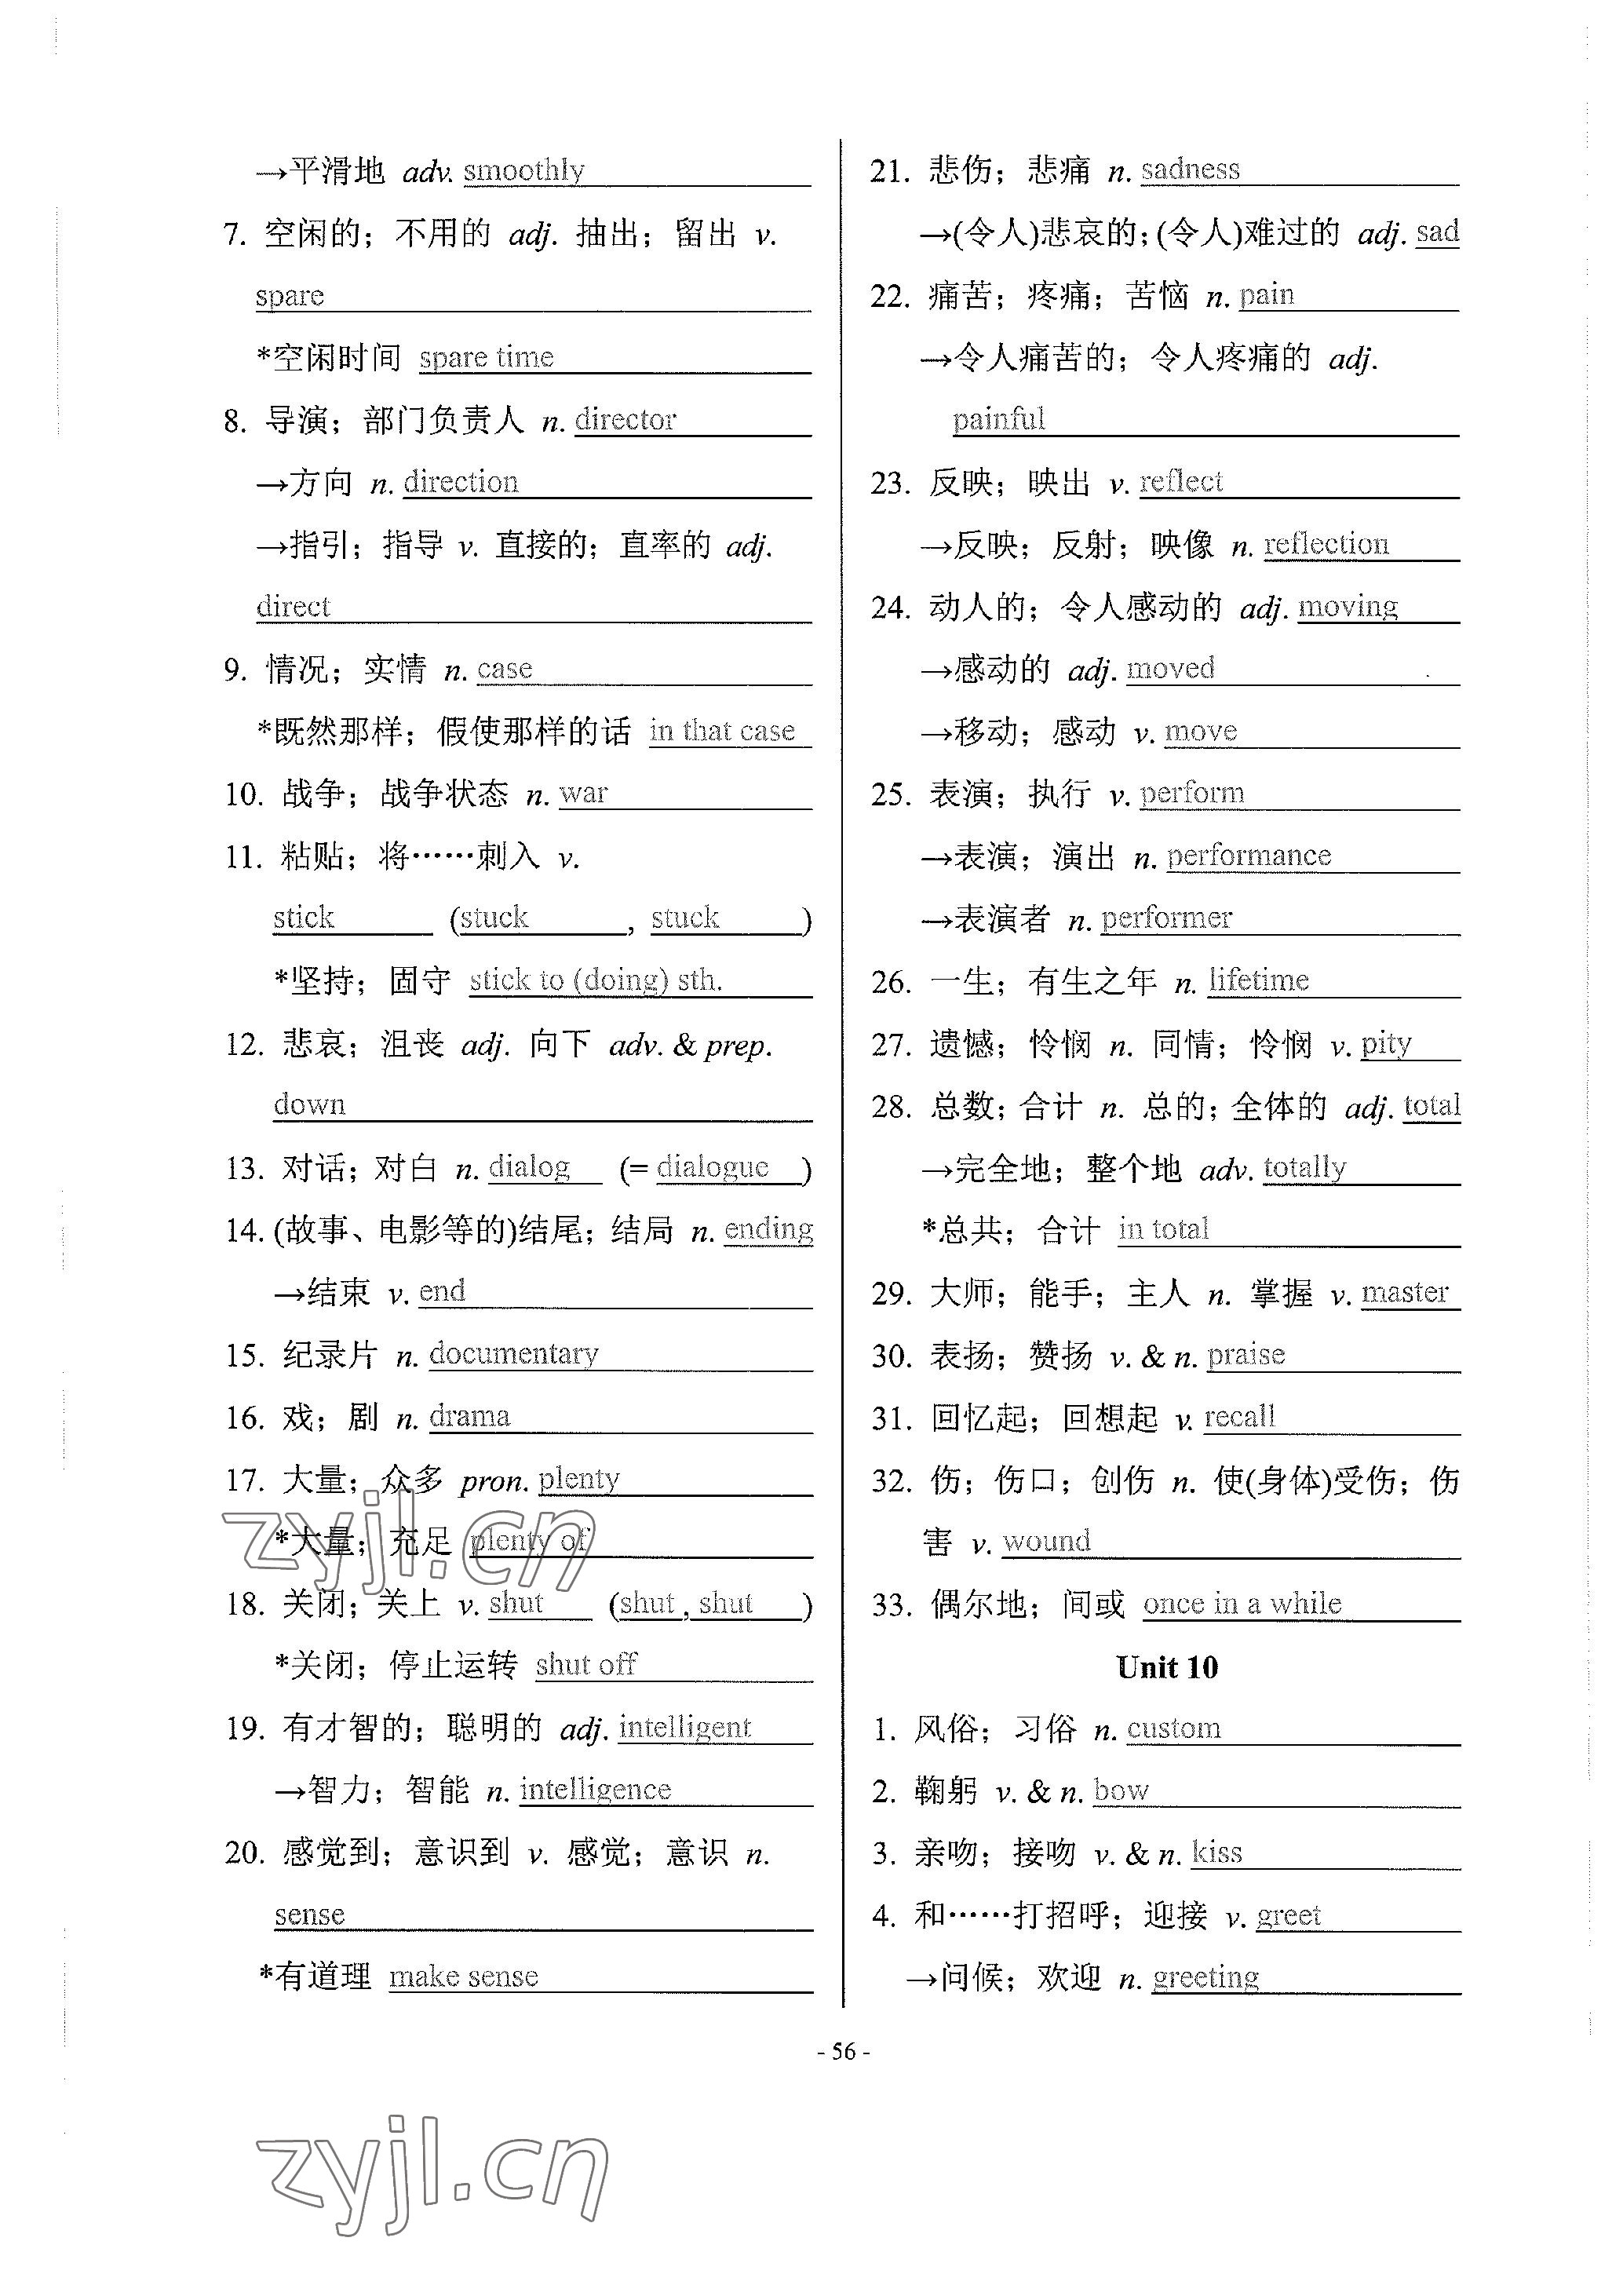 →平滑地 adv. smoothly
7. 空闲的；不用的 adj. 抽出；留出 v.
spare
*空闲时间 spare time
8. 导演；部门负责人 n. director
→方向 n. direction
→指引；指导 v. 直接的；直率的 adj.
direct
9. 情况；实情 n. case
*既然那样；假使那样的话 in that case
10. 战争；战争状态 n. war
11. 粘贴；将……刺入 v.
stick (stuck, stuck)
*坚持；固守 stick to (doing) sth.
12. 悲哀；沮丧 adj. 向下 adv. & prep.
down
13. 对话；对白 n. dialog (= dialogue)
14. (故事、电影等的)结尾；结局 n. ending
→结束 v. end
15. 纪录片 n. documentary
16. 戏；剧 n. drama
17. 大量；众多 pron. plenty
*大量；充足 plenty of
18. 关闭；关上 v. shut (shut, shut)
*关闭；停止运转 shut off
19. 有才智的；聪明的 adj. intelligent
→智力；智能 n. intelligence
20. 感觉到；意识到 v. 感觉；意识 n.
sense
*有道理 make sense
21. 悲伤；悲痛 n. sadness
→(令人)悲哀的；(令人)难过的 adj. sad
22. 痛苦；疼痛；苦恼 n. pain
→令人痛苦的；令人疼痛的 adj.
painful
23. 反映；映出 v. reflect
→反映；反射；映像 n. reflection
24. 动人的；令人感动的 adj. moving
→感动的 adj. moved
→移动；感动 v. move
25. 表演；执行 v. perform
→表演；演出 n. performance
→表演者 n. performer
26. 一生；有生之年 n. lifetime
27. 遗憾；怜悯 n. 同情；怜悯 v. pity
28. 总数；合计 n. 总的；全体的 adj. total
→完全地；整个地 adv. totally
*总共；合计 in total
29. 大师；能手；主人 n. 掌握 v. master
30. 表扬；赞扬 v. & n. praise
31. 回忆起；回想起 v. recall
32. 伤；伤口；创伤 n. 使(身体)受伤；伤
害 v. wound
33. 偶尔地；间或 once in a while
Unit 10
1. 风俗；习俗 n. custom
2. 鞠躬 v. & n. bow
3. 亲吻；接吻 v. & n. kiss
4. 和……打招呼；迎接 v. greet
→问候；欢迎 n. greeting
- 56 -
zyjl.cn
zyjl.cn